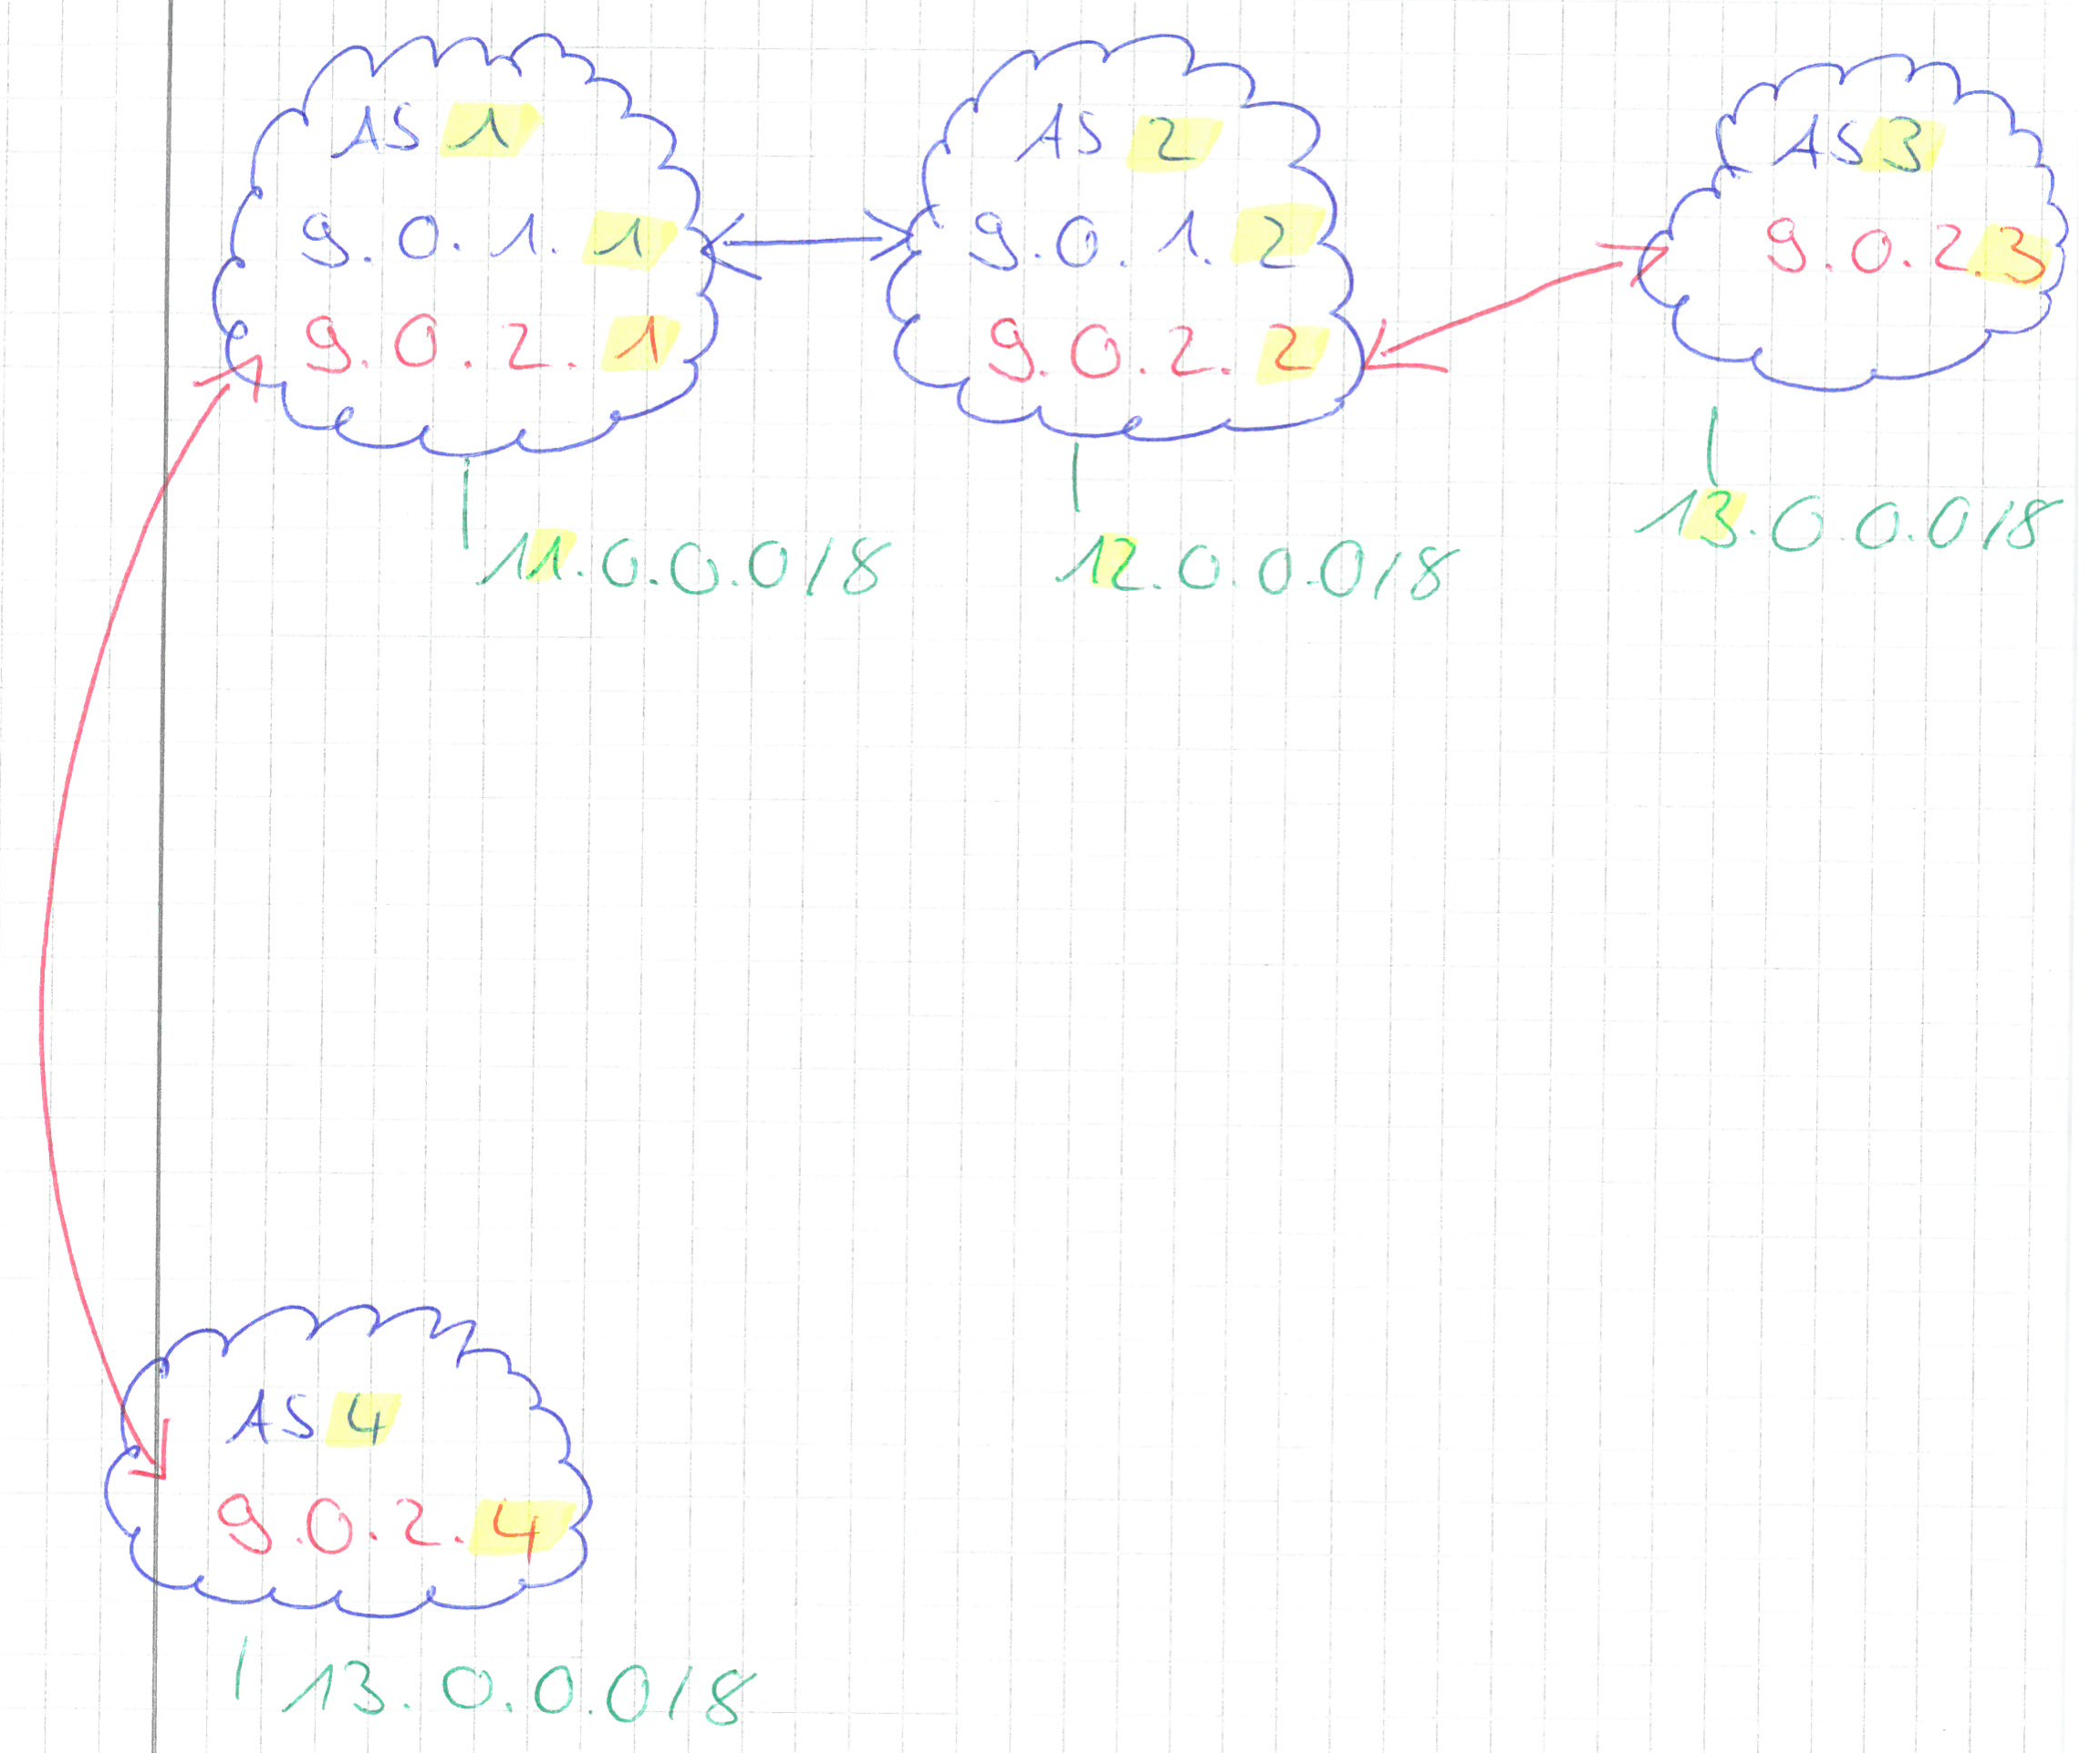 AS 1
9.0.1.1
9.0.2.1
11.0.0.0/8
AS 2
9.0.1.2
9.0.2.2
12.0.0.0/8
AS 3
9.0.2.3
13.0.0.0/8
AS 4
9.0.2.4
13.0.0.0/8